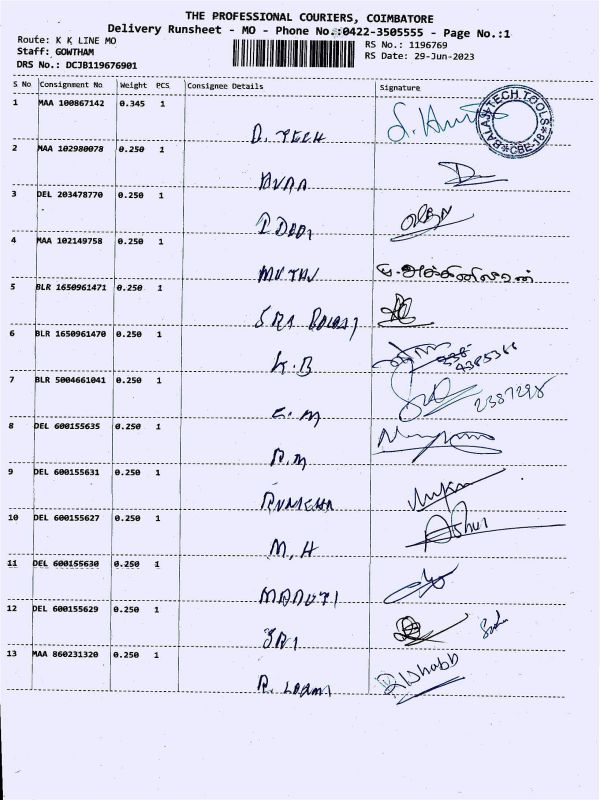 THE PROFESSIONAL COURIERS, COIMBATORE
Delivery Runsheet - MO - Phone No.:0422-3505555 - Page No.:1
Route: K K LINE MO
RS No.: 1196769
Staff: GOWTHAM
RS Date: 29-Jun-2023
DRS No.: DCJB119676901
S No Consignment No Weight PCS Consignee Details Signature
1 MAA 100867142 0.345 1
D. TECH
BALAJI TECH TOOLS CBE-18
2 MAA 102980078 0.250 1
3 DEL 203478770 0.250 1
4 MAA 102149758 0.250 1
MUTHU
5 BLR 1650961471 0.250 1
SRI BALAJI
6 BLR 1650961470 0.250 1
K.B
4385366
7 BLR 5004661041 0.250 1
S.M
2387298
8 DEL 600155635 0.250 1
R.M
9 DEL 600155631 0.250 1
10 DEL 600155627 0.250 1
M.H
11 DEL 600155630 0.250 1
MARUTI
12 DEL 600155629 0.250 1
SRI
13 MAA 860231320 0.250 1
R. Laxmi